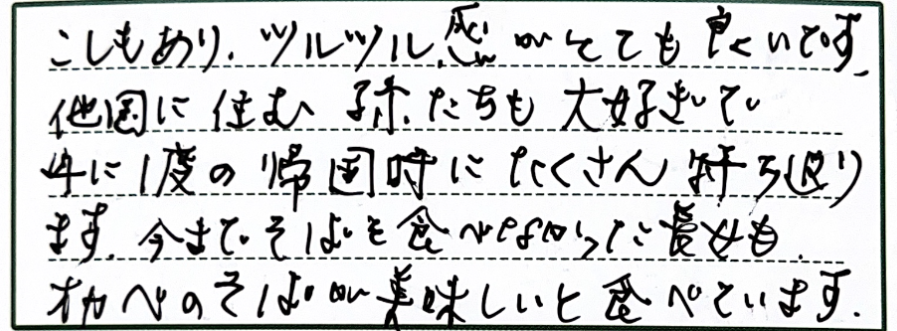 こしもあり、ツルツル感がとても良いです。
他国に住む孫たちも大好きで、
年に1度の帰国時にたくさん持ち返り
ます。今までそばを食べなかった長女も
オカベのそばが美味しいと食べています。